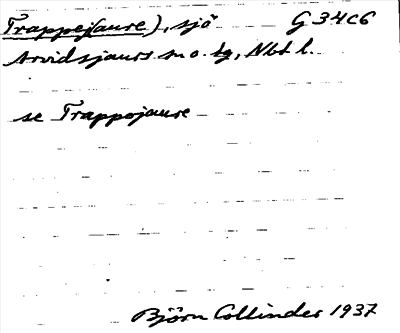 Trappe(jaure), sjö G 34c6
Arvidsjaurs sn o. tg, Nbt l.
se Trappojaure
Björn Collinder 1937